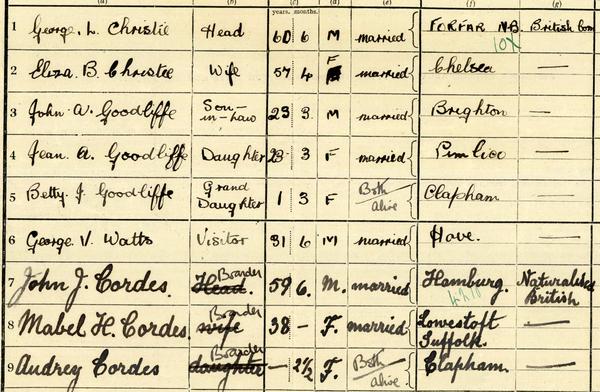 (a) (b) (c) (d) (e) (f) (g)
years. months.
1 George. L. Christie Head 60 6 M married FORFAR N.B. British born
10X
2 Eliza. B. Christie Wife 57 4 F married Chelsea —
3 John. A. Goodliffe Son-in-Law 23 3. M married Brighton —
4 Jean. A. Goodliffe Daughter 23 3 F married Pimlico —
5 Betty. J. Goodliffe Grand Daughter 1 3 F Both alive Clapham —
6 George. V. Watts Visitor 31 6 M married Hove. —
7 John J. Cordes. Head Boarder 59 6. M. married Hamburg. Naturalised British
8 Mabel H. Cordes. wife Boarder 38 – F. married Lowestoft Suffolk. —
9 Audrey Cordes daughter Boarder – 2½ F. Both alive Clapham. —